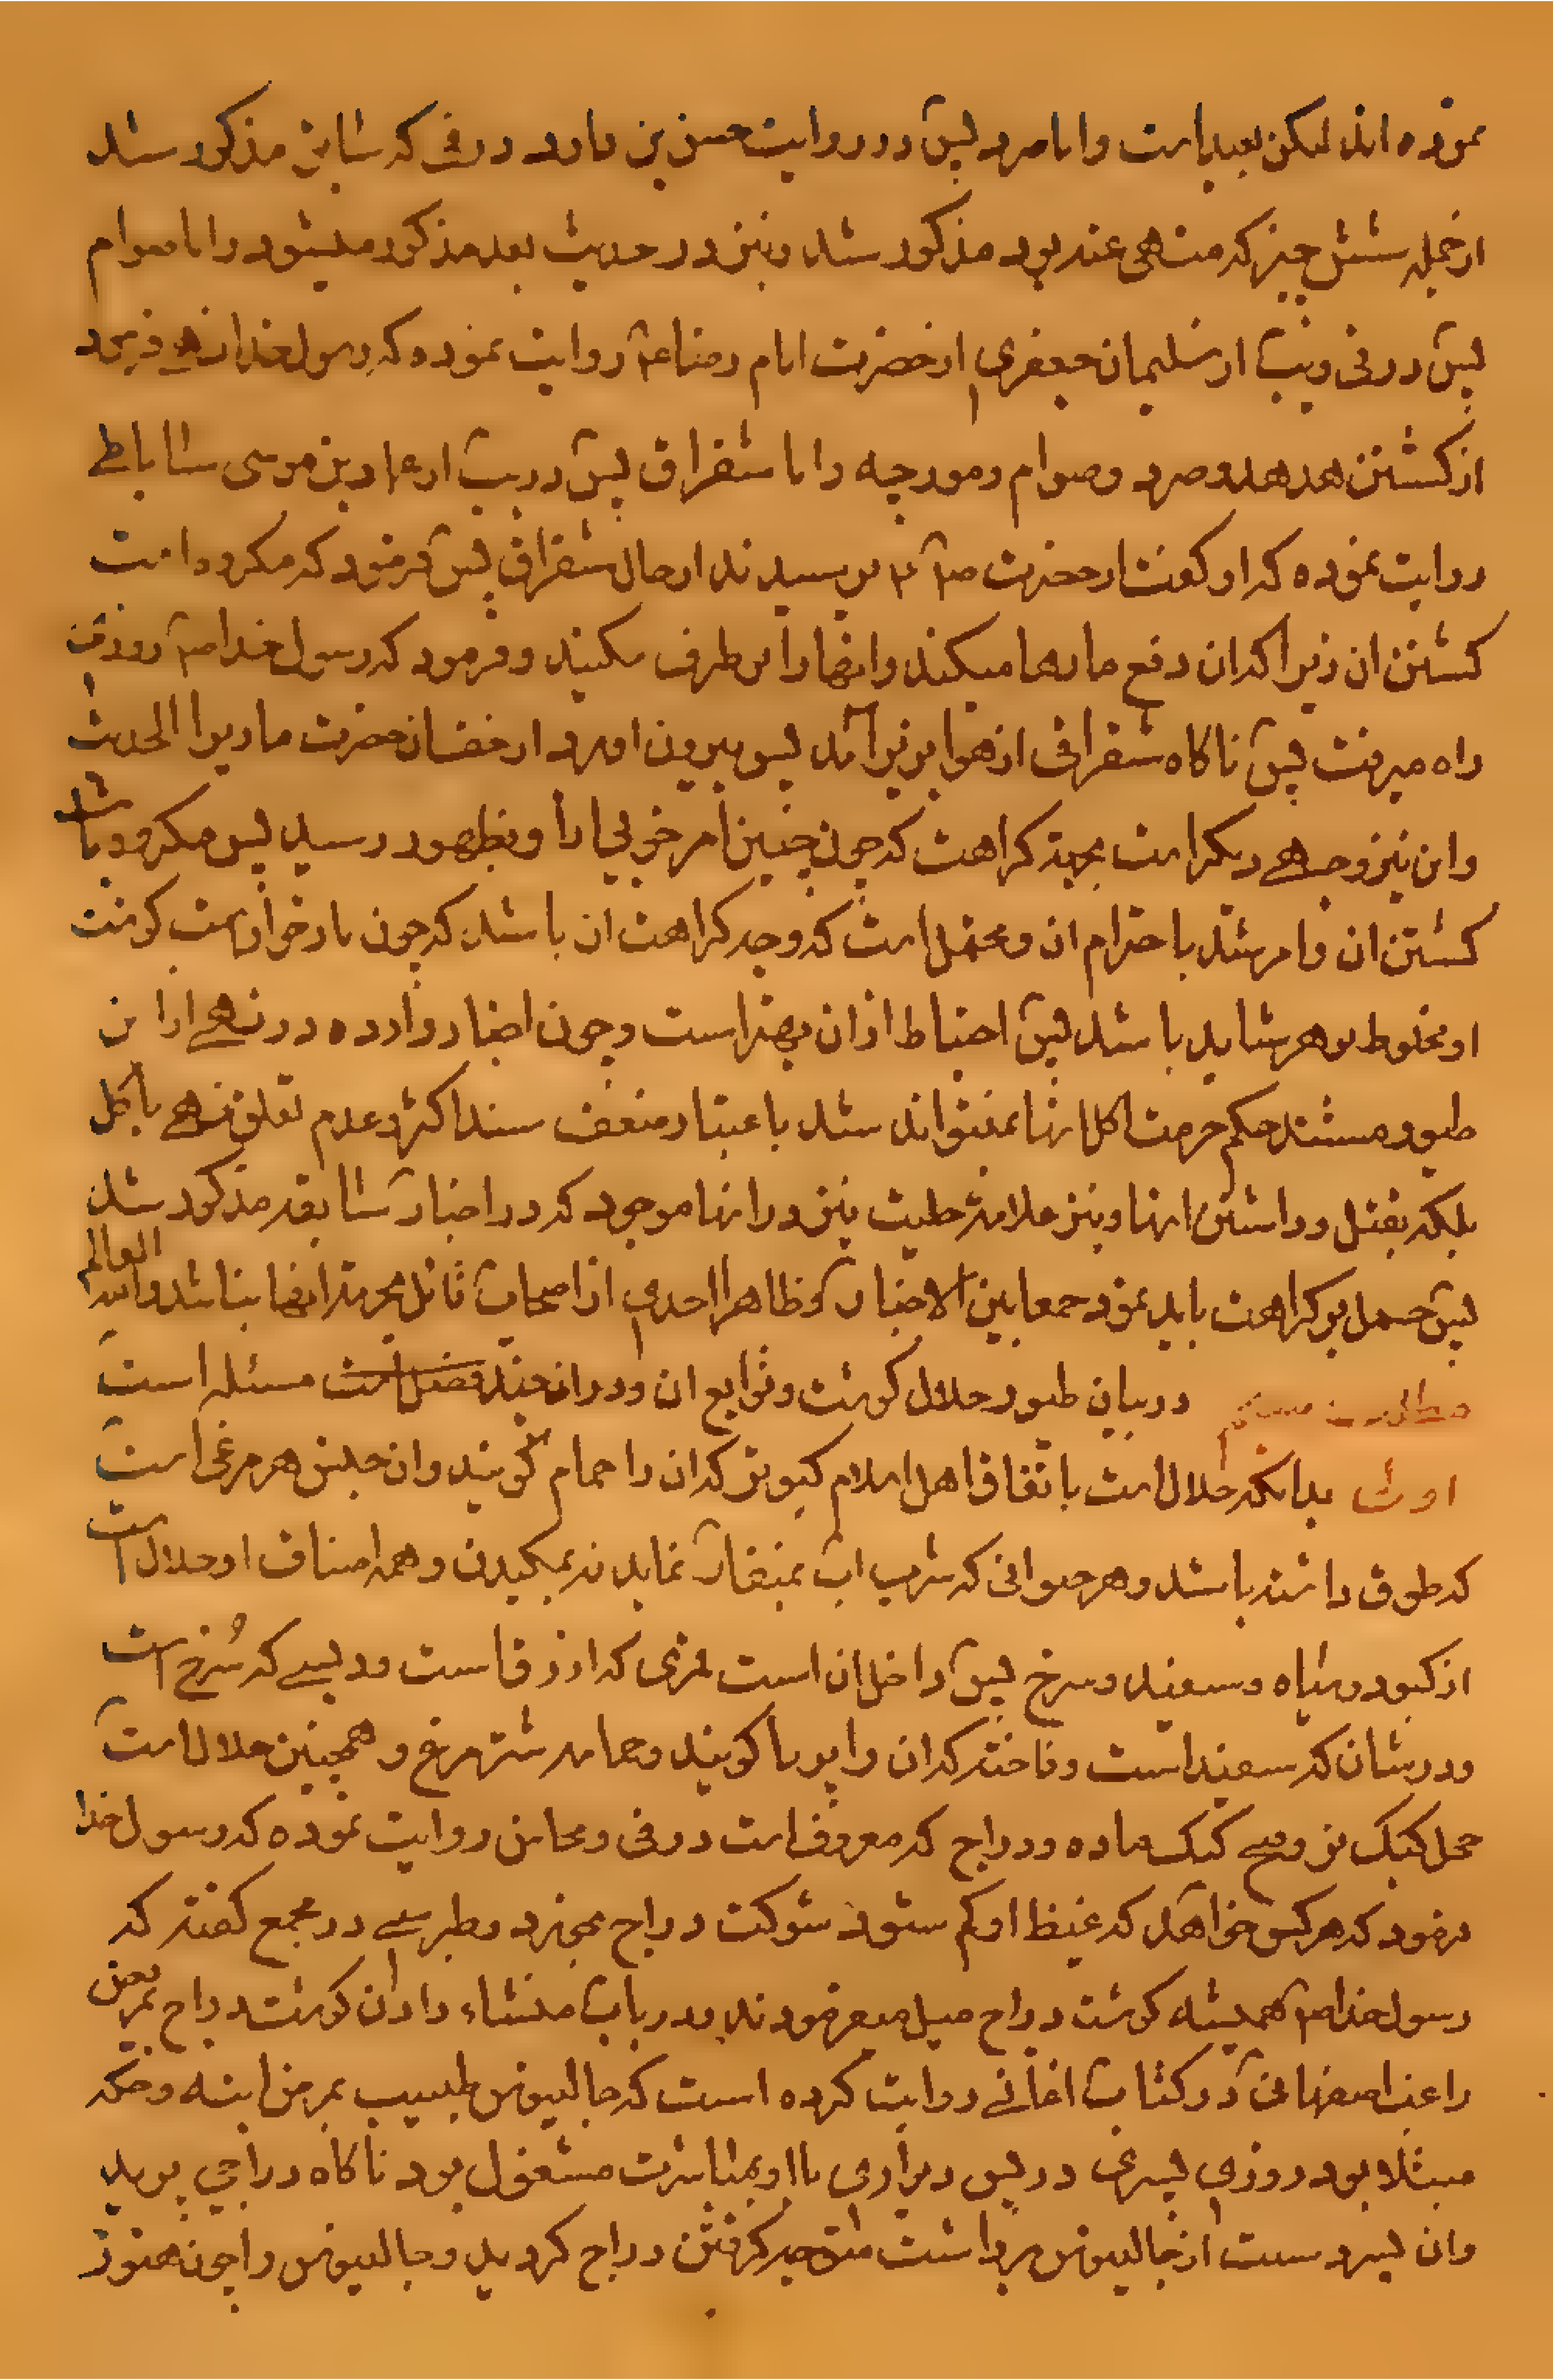 نموده اند لیکن بعید است و اما صرد پس در روایت حسن بن داود در فی که سابق مذکور شد
از جمله شش چیز که منهی عنه بود مذکور شد و نیز در حدیث بعد مذکور میشود و اما صوام
پس در فی و یب از سلیمان جعفری از حضرت امام رضا ع روایت نموده که رسول خدا نهی فرمود
از کشتن هدهد و صرد و صوام و مورچه و اما شقراق پس در یب از عمار بن موسی ساباطی
روایت نموده که او کفت از حضرت ص ع پرسیدند از حال شقراق پس فرمود که مکروه است
کشتن ان زیرا که ان دفع مارها میکند و انها را بر طرف میکند و فرمود که رسول خدا ص روزی
راه میرفت پس ناکاه شقراقی از هوا بزیر آمد پس بیرون اورد از خف ان حضرت ماریرا الحدیث
و این نیز وجهی دیکر است بجهة کراهت که چون چنین امر خوبی از او بظهور رسید پس مکروه باشد
کشتن ان و امر شد باحترام ان و محتمل است که وجه کراهت ان باشد که چون مارخوار است کوشت
او مخلوط بزهر شاید باشد پس احتیاط از ان بهتر است و چون اخبار وارده در نهی از این
طیور مستند حکم حرمت اکل انها نمیتواند شد باعتبار ضعف سند اکثر و عدم تعلق نهی باکل
بلکه بقتل و داشتن انها و نیز علامة حلیت نیز در انها موجود که در اخبار سابقه مذکور شد
پس حمل بر کراهت باید نمود جمعا بین الاخبار که ظاهرا احدی از اصحاب قائل بحرمة انها نباشد والله العالم
مطلب در بیان طیور حلال کوشت و توابع ان و در ان چند فصل است مسئله است
اول بدانکه حلال است باتفاق اهل اسلام کبوتر که ان را حمام کویند و ان جنس هر مرغی است
که طوق داشته باشد و هر حیوانی که شرب اب بمنقار نماید نه بمکیدن و همه اصناف او حلال است
از کبود و سیاه و سفید و سرخ پس داخل ان است قمری که ازرق است و دبسی که سرخ است
و ورشان که سفید است و فاخته که ان را کویند و شتر مرغ و همچنین حلال است
حجل کبک نر و کبک ماده و دراج که معروف است در فی و محاسن روایت نموده که رسول خدا
فرمود که هر کس خواهد که غیظ او کم شود کوشت دراج بخورد و طبرسی در مجمع کفته که
رسول خدا ص همیشه کوشت دراج میل میفرمودند و در باب منشاء دادن کوشت دراج بمریض
راغب اصفهانی در کتاب اغانی روایت کرده است که جالینوس طبیب بمرض ابنه و حکه
مبتلا بود روزی پسری در پس دیواری با او بمباشرت مشغول بود ناکاه دراجی پرید
و ان پسر دست از جالینوس برداشت متوجه کرفتن دراج کردید و جالینوس را چون هنوز